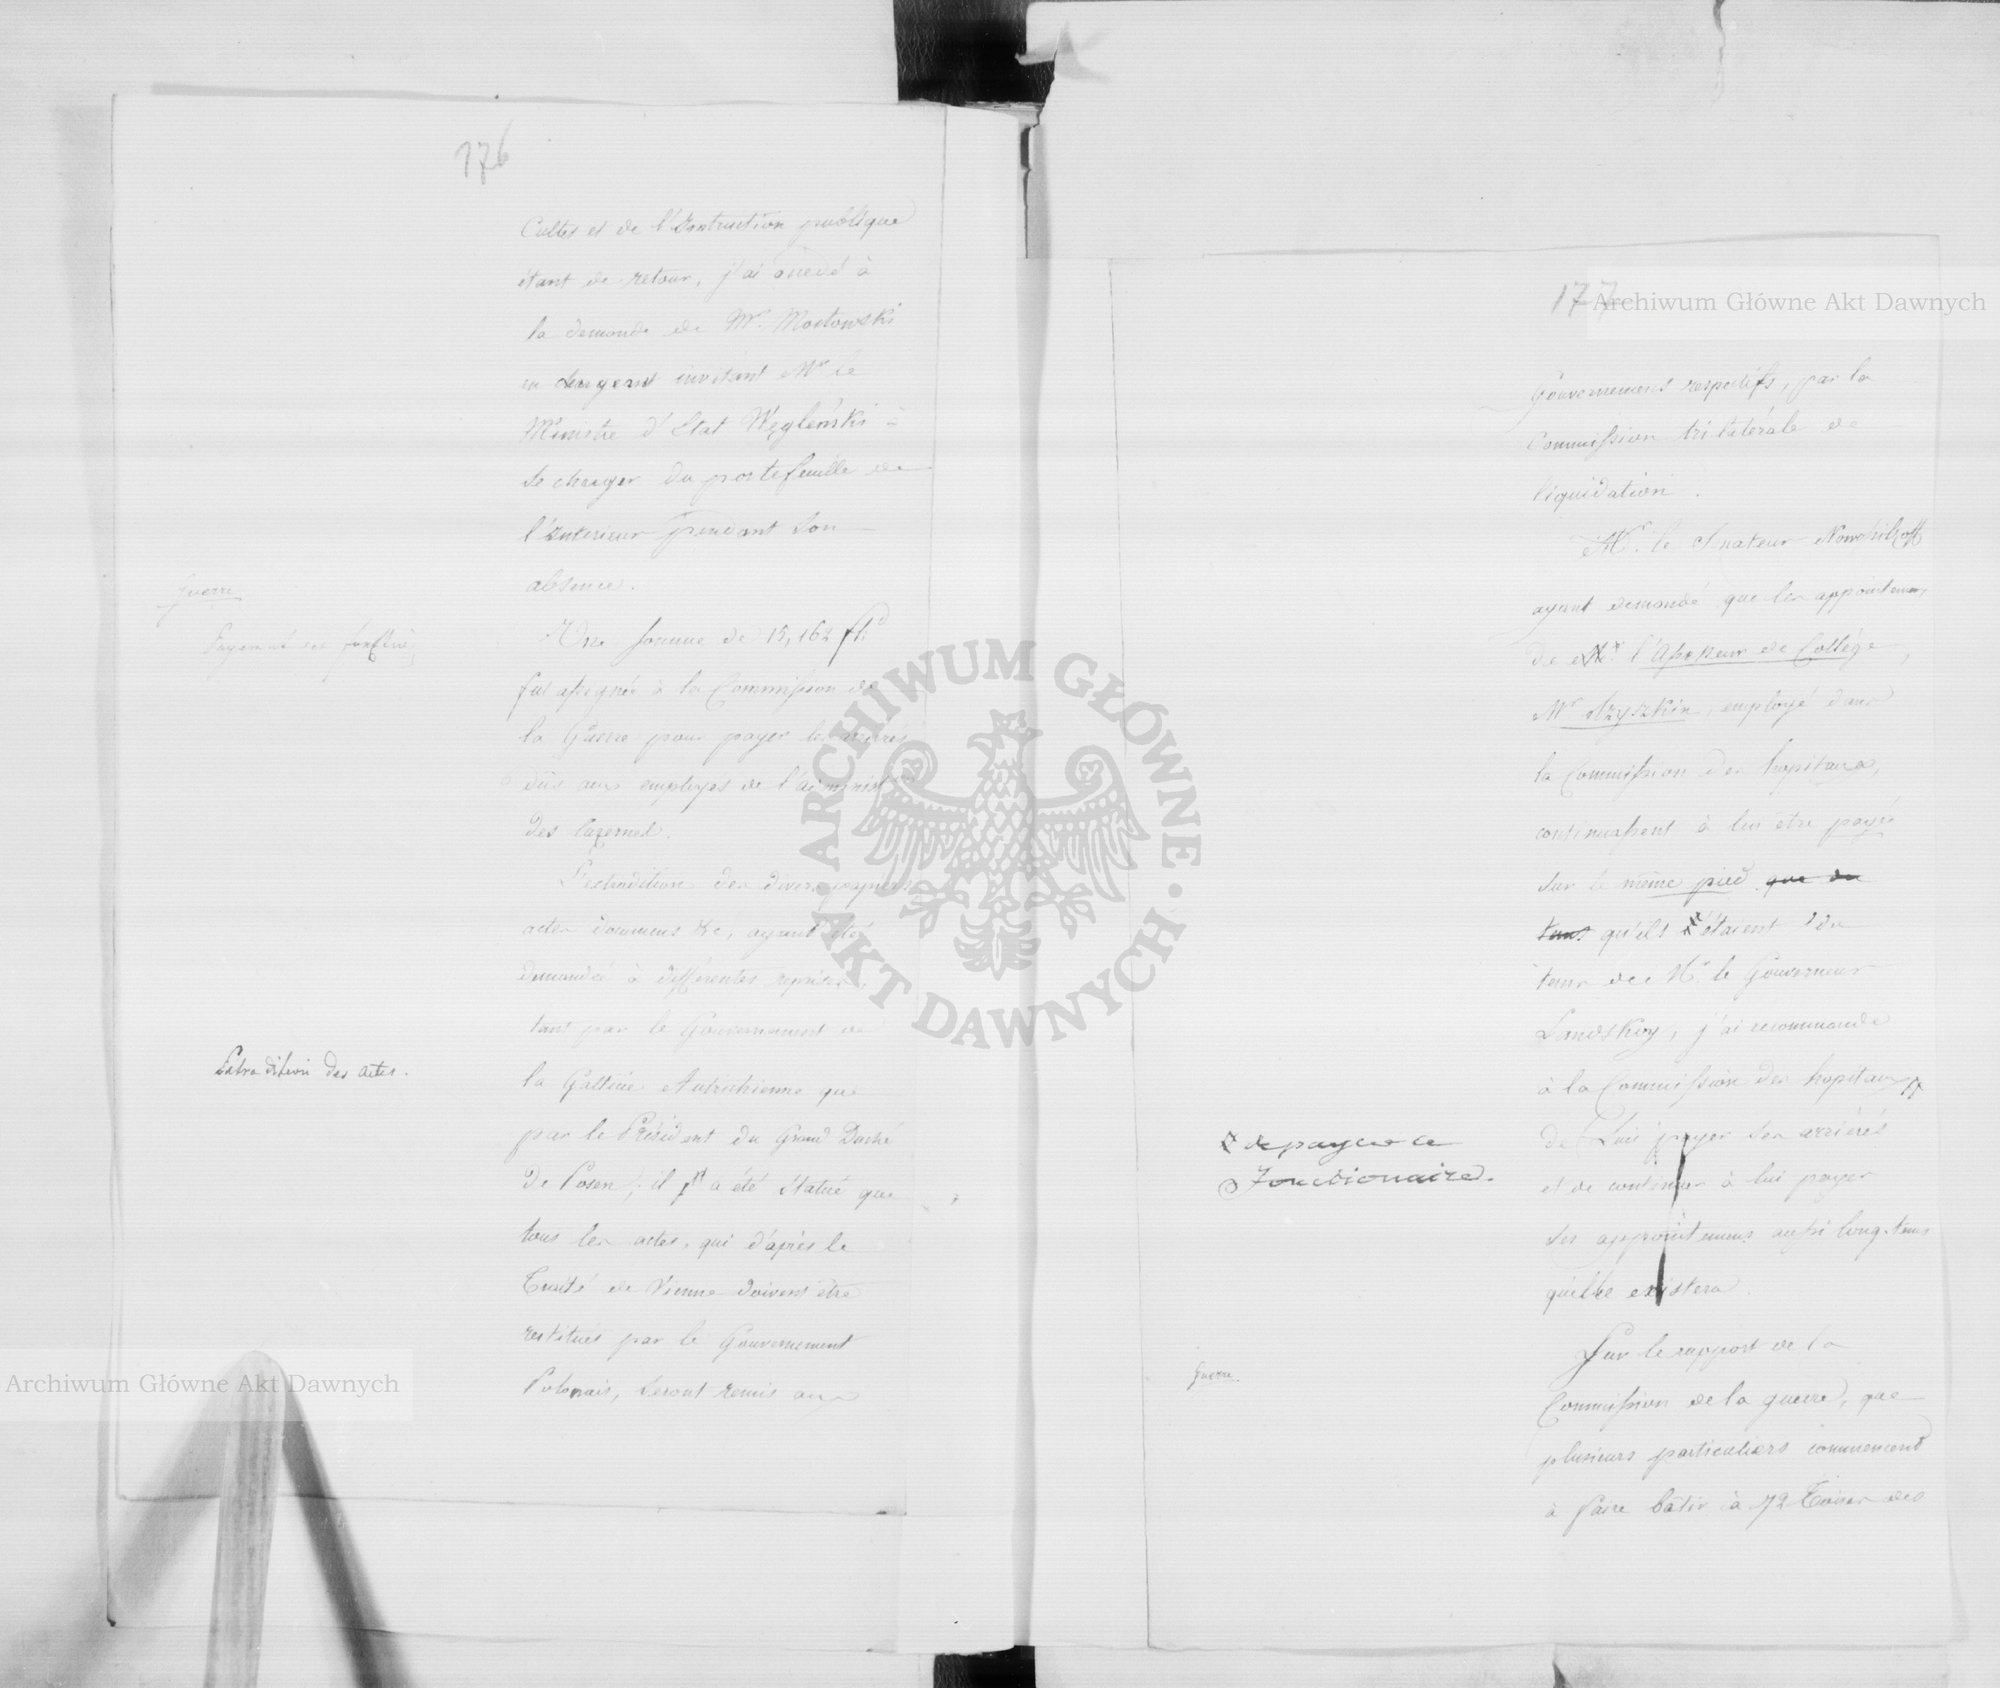 176
Cultes et de l'Instruction publique
étant de retour, j'ai accédé à
la demande de Mr. Mostowski
en invitant Mr le
Ministre d'Etat Węgleński à
se charger du portefeuille de
l'Interieur pendant son
absence.
Guerre
Une somme de 15,162 fl.
fut assignée à la Commission de
la Guerre pour payer les arriérés
dûs aux employes de l'administ
des Cazernes.
L'extradition des divers papiers
actes documens &c, ayant été
demandée à différentes reprises,
tant par le Gouvernement de
Extradition des actes.
la Gallicie Autrichienne que
par le Président du Grand Duché
de Posen, il a été statué que
tous les actes, qui d'après le
Traité de Vienne doivent être
restitués par le Gouvernement
Polonais, seront remis aux
177
Gouvernemens respectifs, par la
Commission trilatérale de
liquidation.
Mr. le Senateur Nowosilzoff
ayant demandé que les appointemens
de Mr. l'Assesseur de Collége,
Mr , employé dans
la Commission des hopitaux,
continuassent à lui etre payés
sur le même pied que du
tems qu'ils étaient du
tems de Mr. le Gouverneur
Lanskoy, j'ai recommandé
à la Commission des hopitaux
de lui payer ses arriérés
x de payer à ce
Fonctionaire.
et de continuer à lui payer
ses appointemens aussi long-tems
qu'elle existera.
Sur le rapport de la
Guerre.
Commission de la guerre, que
plusieurs particuliers commencent
à faire bâtir à 72 Toises des
Archiwum Główne Akt Dawnych
Archiwum Główne Akt Dawnych
ARCHIWUM GŁÓWNE AKT DAWNYCH